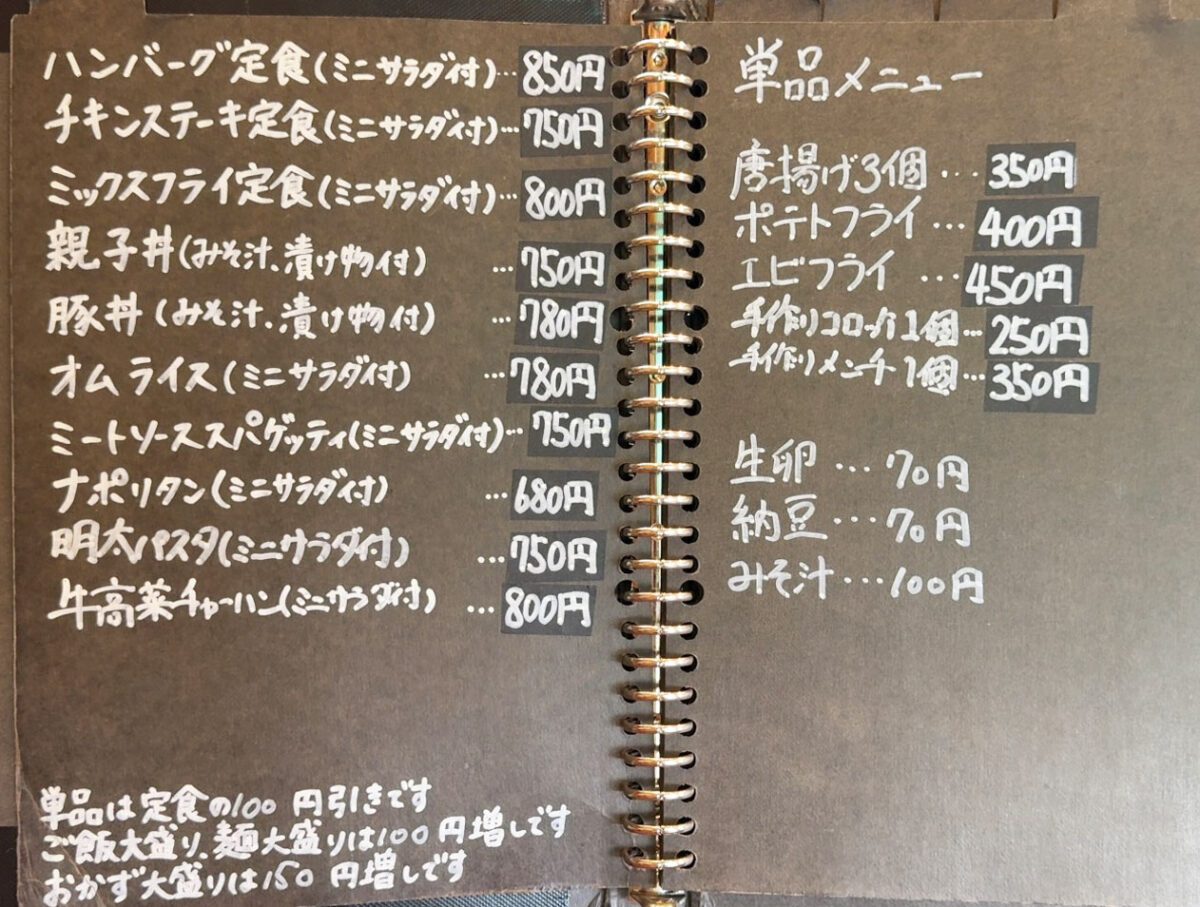 ハンバーグ定食(ミニサラダ付)…850円
チキンステーキ定食(ミニサラダ付)…750円
ミックスフライ定食(ミニサラダ付)…800円
親子丼(みそ汁、漬け物付)…750円
豚丼(みそ汁、漬け物付)…780円
オムライス(ミニサラダ付)…780円
ミートソーススパゲッティ(ミニサラダ付)…750円
ナポリタン(ミニサラダ付)…680円
明太パスタ(ミニサラダ付)…750円
牛高菜チャーハン(ミニサラダ付)…800円
単品は定食の100円引きです
ご飯大盛り、麺大盛りは100円増しです
おかず大盛りは150円増しです
単品メニュー
唐揚げ3個…350円
ポテトフライ…400円
エビフライ…450円
手作りコロッケ1個…250円
手作りメンチ1個…350円
生卵…70円
納豆…70円
みそ汁…100円